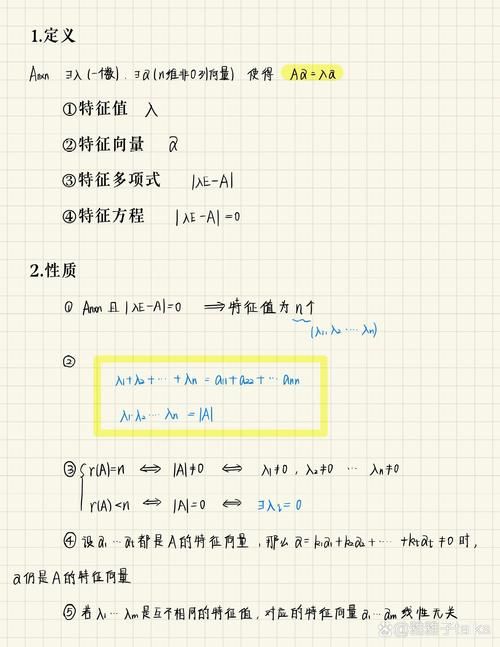 1.定义
Anxn ∃λ(一个数).∃α(n维非0列向量) 使得 Aα=λα
①特征值 λ
②特征向量 α
③特征多项式 |λE-A|
④特征方程 |λE-A|=0
2.性质
① Anxn 且 |λE-A|=0 ⟹ 特征值为n个
(λ1,λ2 ⋯ λn)
②
λ1+λ2+⋯+λn = a11+a22+⋯ann
λ1·λ2⋯λn = |A|
③ { r(A)=n ⟺ |A|≠0 ⟺ λ1≠0,λ2≠0 ⋯ λn≠0
r(A)<n ⟺ |A|=0 ⟺ ∃λi=0
④ 设α1⋯αt都是A的特征向量,那么 α=k1α1+k2α2+⋯+ktαt≠0时,
α仍是A的特征向量
⑤ 若λ1⋯λm是互不相同的特征值,对应的特征向量α1⋯αm线性无关